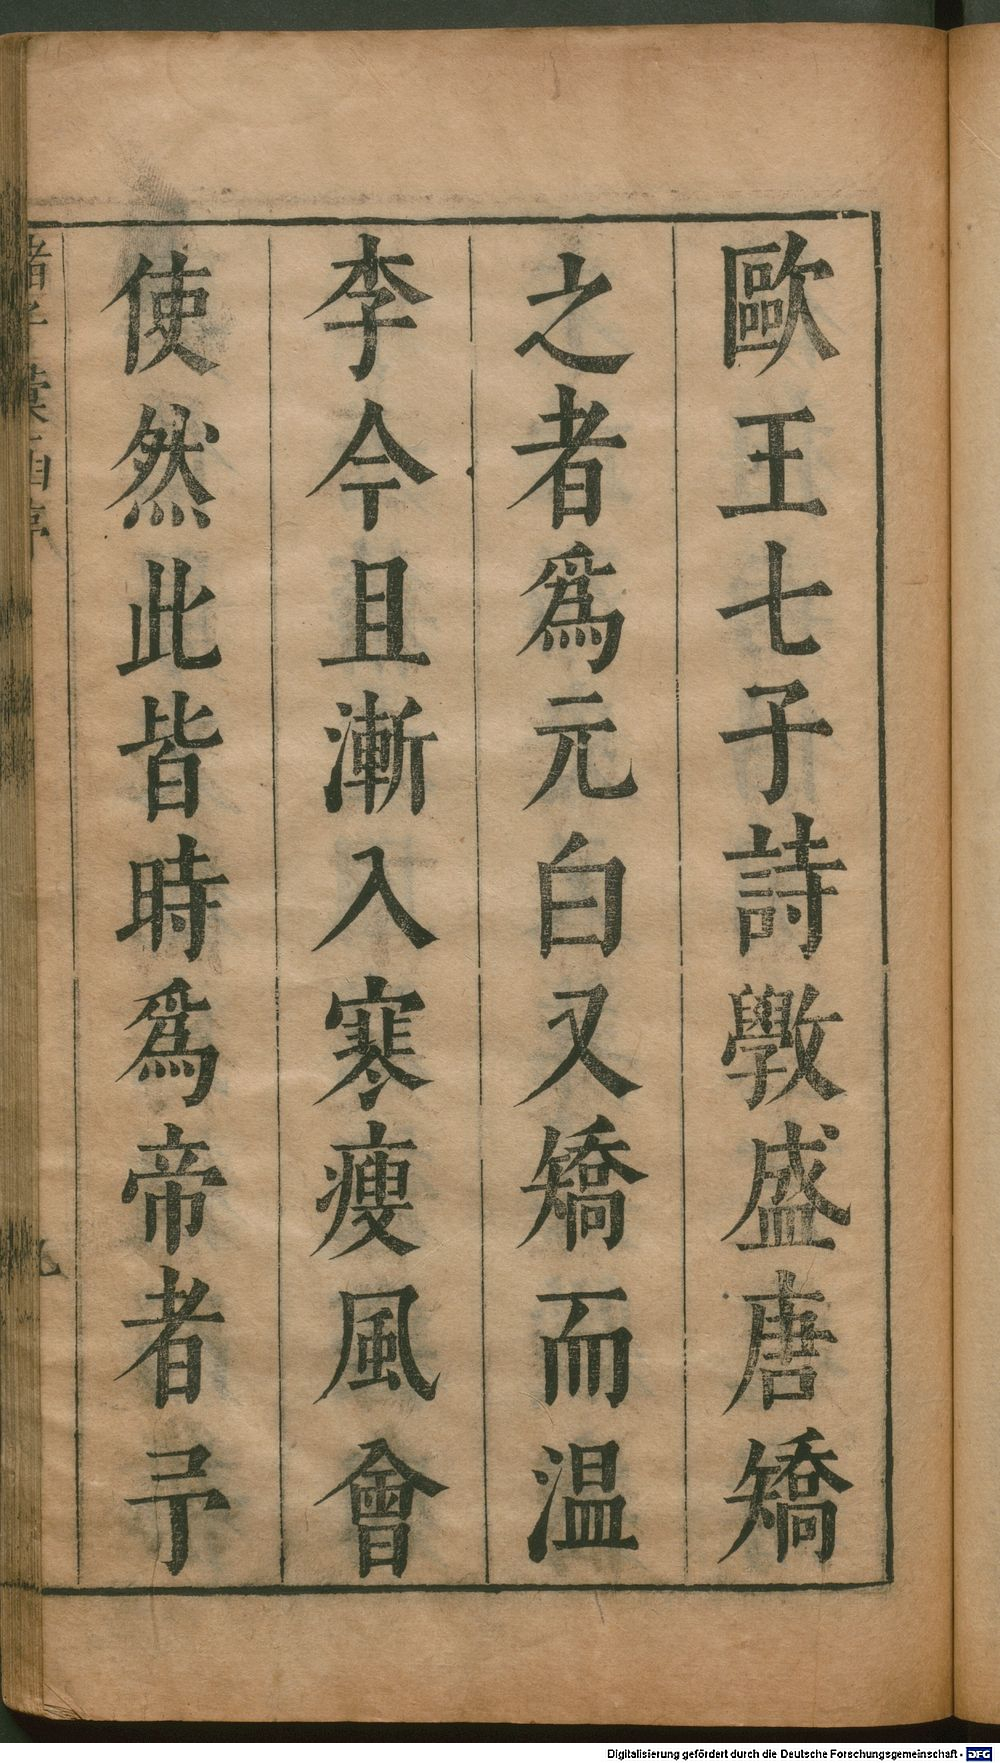 歐王七子詩斆盛唐矯
之者爲元白又矯而温
李今且漸入寒瘦風會
使然此皆時爲帝者予
Digitalisierung gefördert durch die Deutsche Forschungsgemeinschaft - DFG